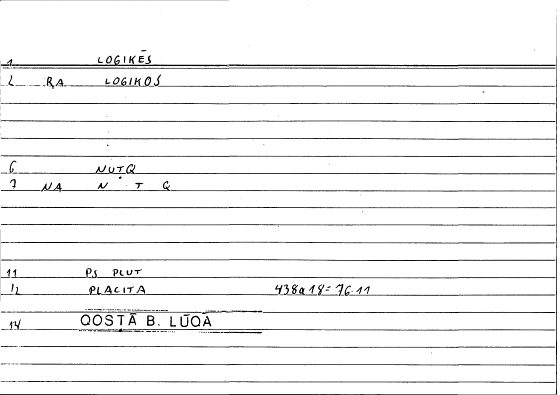 1 LOGIKĒS
2 RA LOGIKOS
6 NUṬQ
7 NA N Ṭ Q
11 PS PLUT
12 PLACITA 438a18=76.11
14 QOSṬĀ B. LŪQĀ